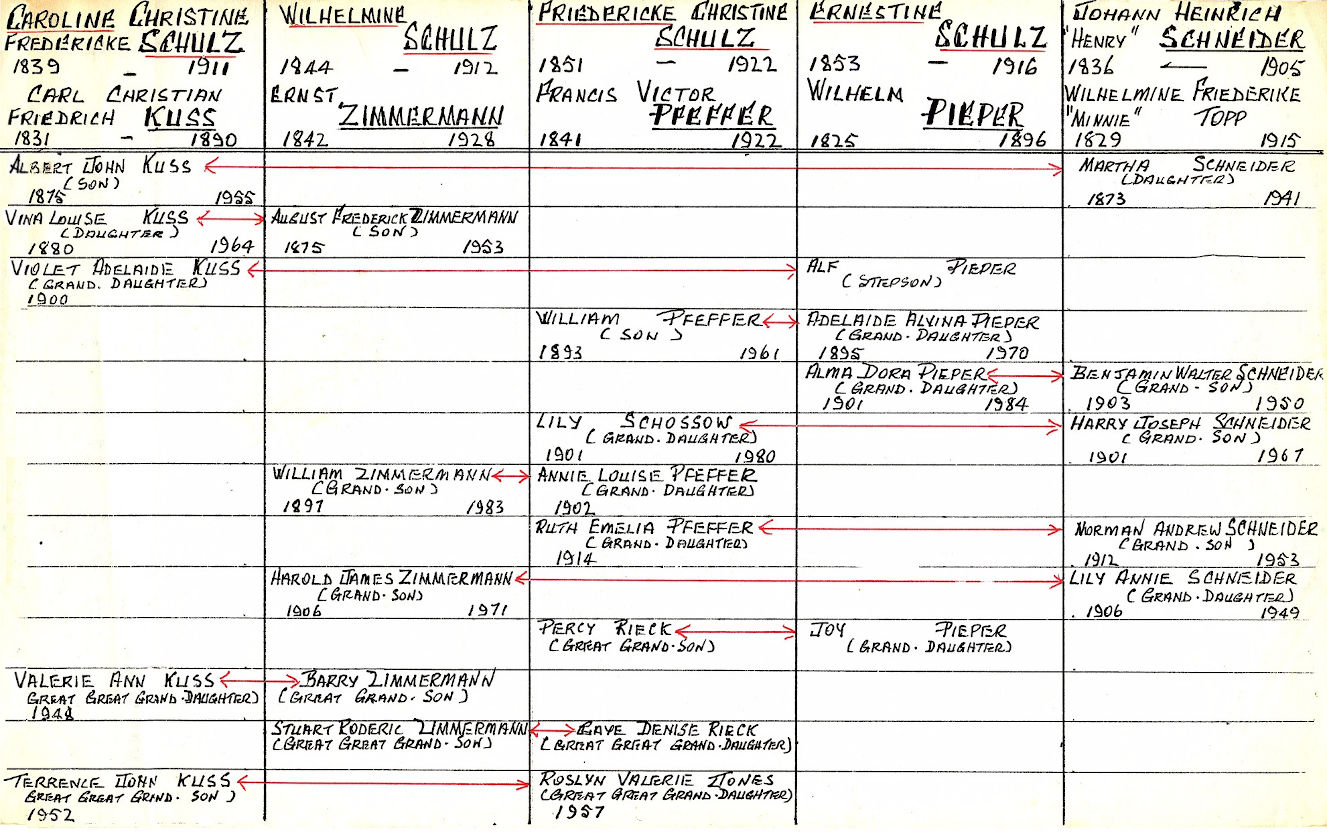 CAROLINE CHRISTINE
FREDERICKE SCHULZ
1839 - 1911
CARL CHRISTIAN
FRIEDRICH KUSS
1831 - 1890
WILHELMINE
SCHULZ
1844 - 1912
ERNST
ZIMMERMANN
1842 1928
FRIEDERICKE CHRISTINE
SCHULZ
1851 - 1922
FRANCIS VICTOR
PFEFFER
1841 1922
ERNESTINE
SCHULZ
1853 - 1916
WILHELM
PIEPER
1825 1896
JOHANN HEINRICH
"HENRY" SCHNEIDER
1836 - 1905
WILHELMINE FRIEDERIKE
"MINNIE" TOPP
1829 1915
ALBERT JOHN KUSS
(SON)
1875 1955
MARTHA SCHNEIDER
(DAUGHTER)
1873 1941
VINA LOUISE KUSS
(DAUGHTER)
1880 1964
AUGUST FREDERICK ZIMMERMANN
(SON)
1875 1953
VIOLET ADELAIDE KUSS
(GRAND. DAUGHTER)
1900
ALF PIEPER
(STEPSON)
WILLIAM PFEFFER
(SON)
1893 1961
ADELAIDE ALVINA PIEPER
(GRAND. DAUGHTER)
1895 1970
ALMA DORA PIEPER
(GRAND. DAUGHTER)
1901 1984
BENJAMIN WALTER SCHNEIDER
(GRAND - SON)
1903 1950
LILY SCHOSSOW
(GRAND. DAUGHTER)
1901 1980
HARRY JOSEPH SCHNEIDER
(GRAND. SON)
1901 1967
WILLIAM ZIMMERMANN
(GRAND. SON)
1897 1983
ANNIE LOUISE PFEFFER
(GRAND. DAUGHTER)
1902
RUTH EMELIA PFEFFER
(GRAND. DAUGHTER)
1914
NORMAN ANDREW SCHNEIDER
(GRAND. SON)
1912 1953
HAROLD JAMES ZIMMERMANN
(GRAND. SON)
1906 1971
LILY ANNIE SCHNEIDER
(GRAND. DAUGHTER)
1906 1949
PERCY RIECK
(GREAT GRAND. SON)
JOY PIEPER
(GRAND. DAUGHTER)
VALERIE ANN KUSS
GREAT GREAT GRAND. DAUGHTER)
1948
BARRY ZIMMERMANN
(GREAT GRAND. SON)
STUART RODERIC ZIMMERMANN
(GREAT GREAT GRAND. SON)
GAYE DENISE RIECK
(GREAT GREAT GRAND. DAUGHTER)
TERRENCE JOHN KUSS
GREAT GREAT GRIND. SON)
1952
ROSLYN VALERIE JONES
(GREAT GREAT GRAND. DAUGHTER)
1957